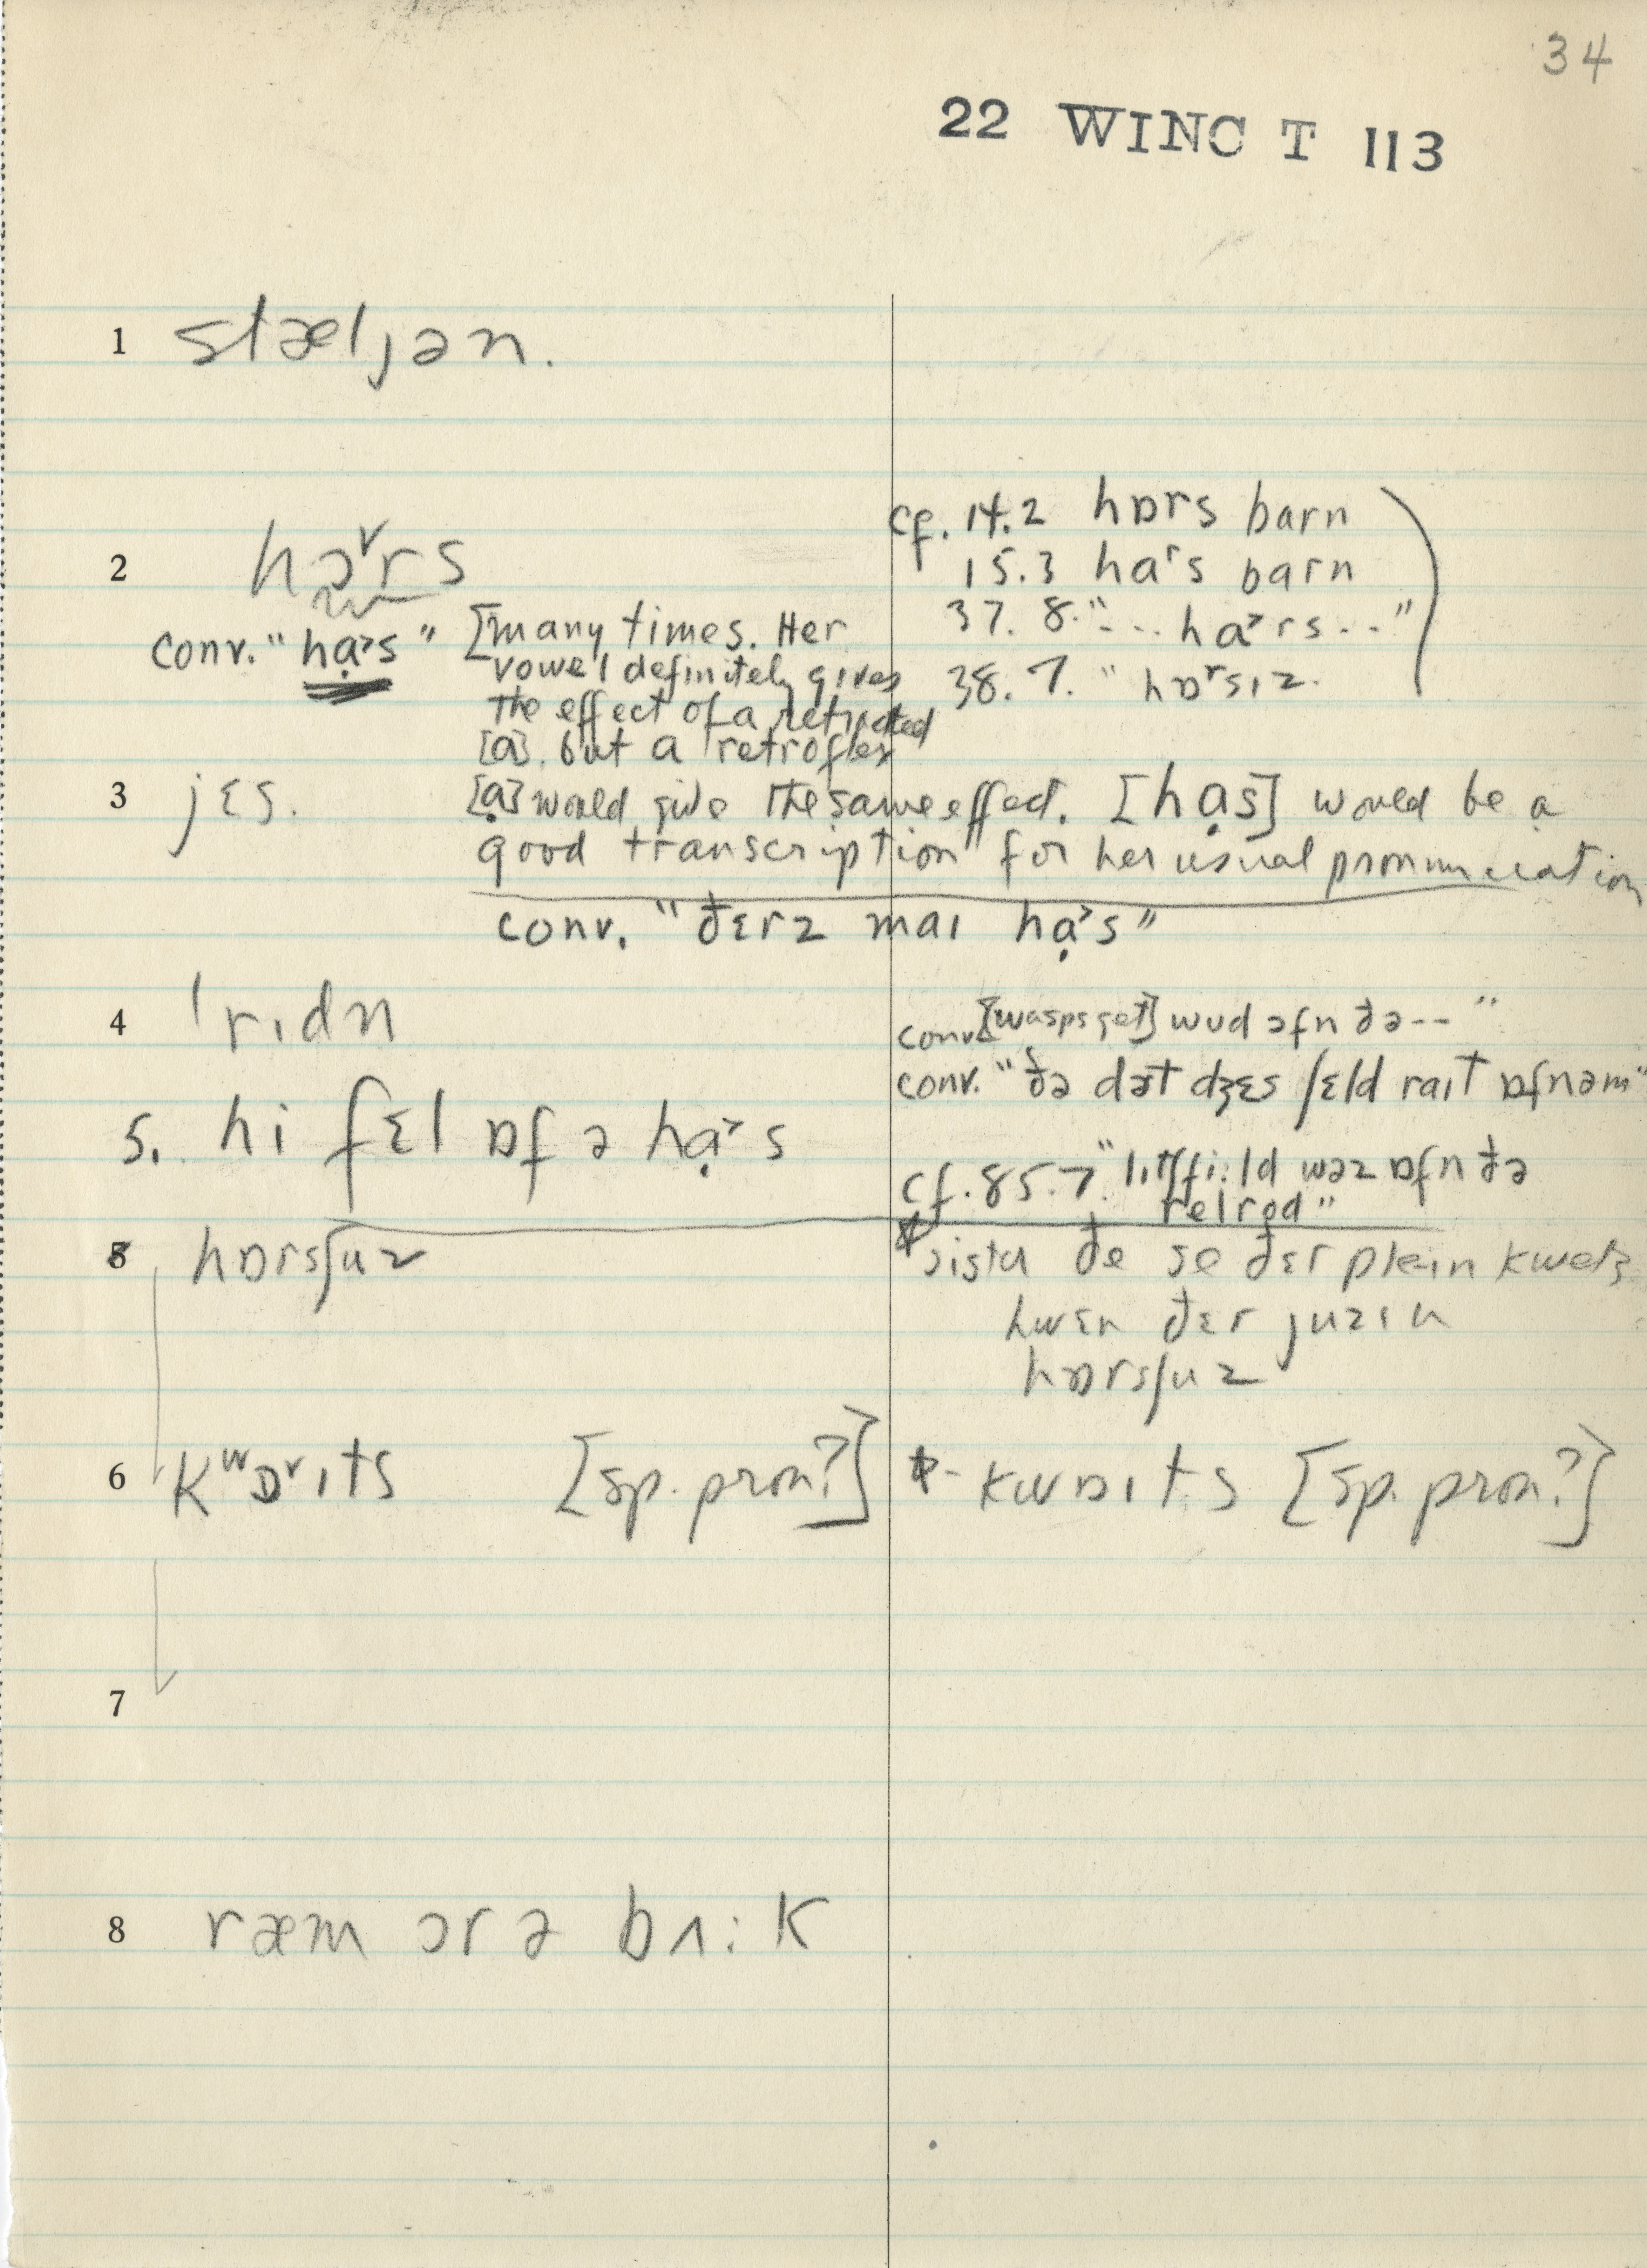 34
22 WINC T 113
1 stæljən.
2 hɔ˅rs
cf. 14.2 hɒrs barn
15.3 haʳs barn
37. 8. "... ha˃rs..."
38. 7. " hɒʳsɪz.
conv. "hạ˃s" [many times. Her
vowel definitely gives
the effect of a retracted
[a], but a retroflex
3 jɛs.
[ạ] would give the same effect. [hạs] would be a
good transcription for her usual pronunciation
conv. "ðɛrz maɪ hạ˃s"
4 ˈrɪdn
conv. [wasps get] wud ɔfn ðə -- "
conv. "ðə dət dʒɛs fɛld raɪt ɒfnəm"
5. hi fɛl ɒf ə hạ˃s
cf. 85.7. " fi:ld wəz ɒfn ðə
relrod"
5 hɒrsʃuz
ðe se ðɛr plein
hwɛn ðɛr juzɪn
hɒrsʃuz
6 kʷɒ˅ɪts [sp. pron?]
- kwɒɪts [sp. pron?]
7
8 ræm ɔr ə bʌ:k